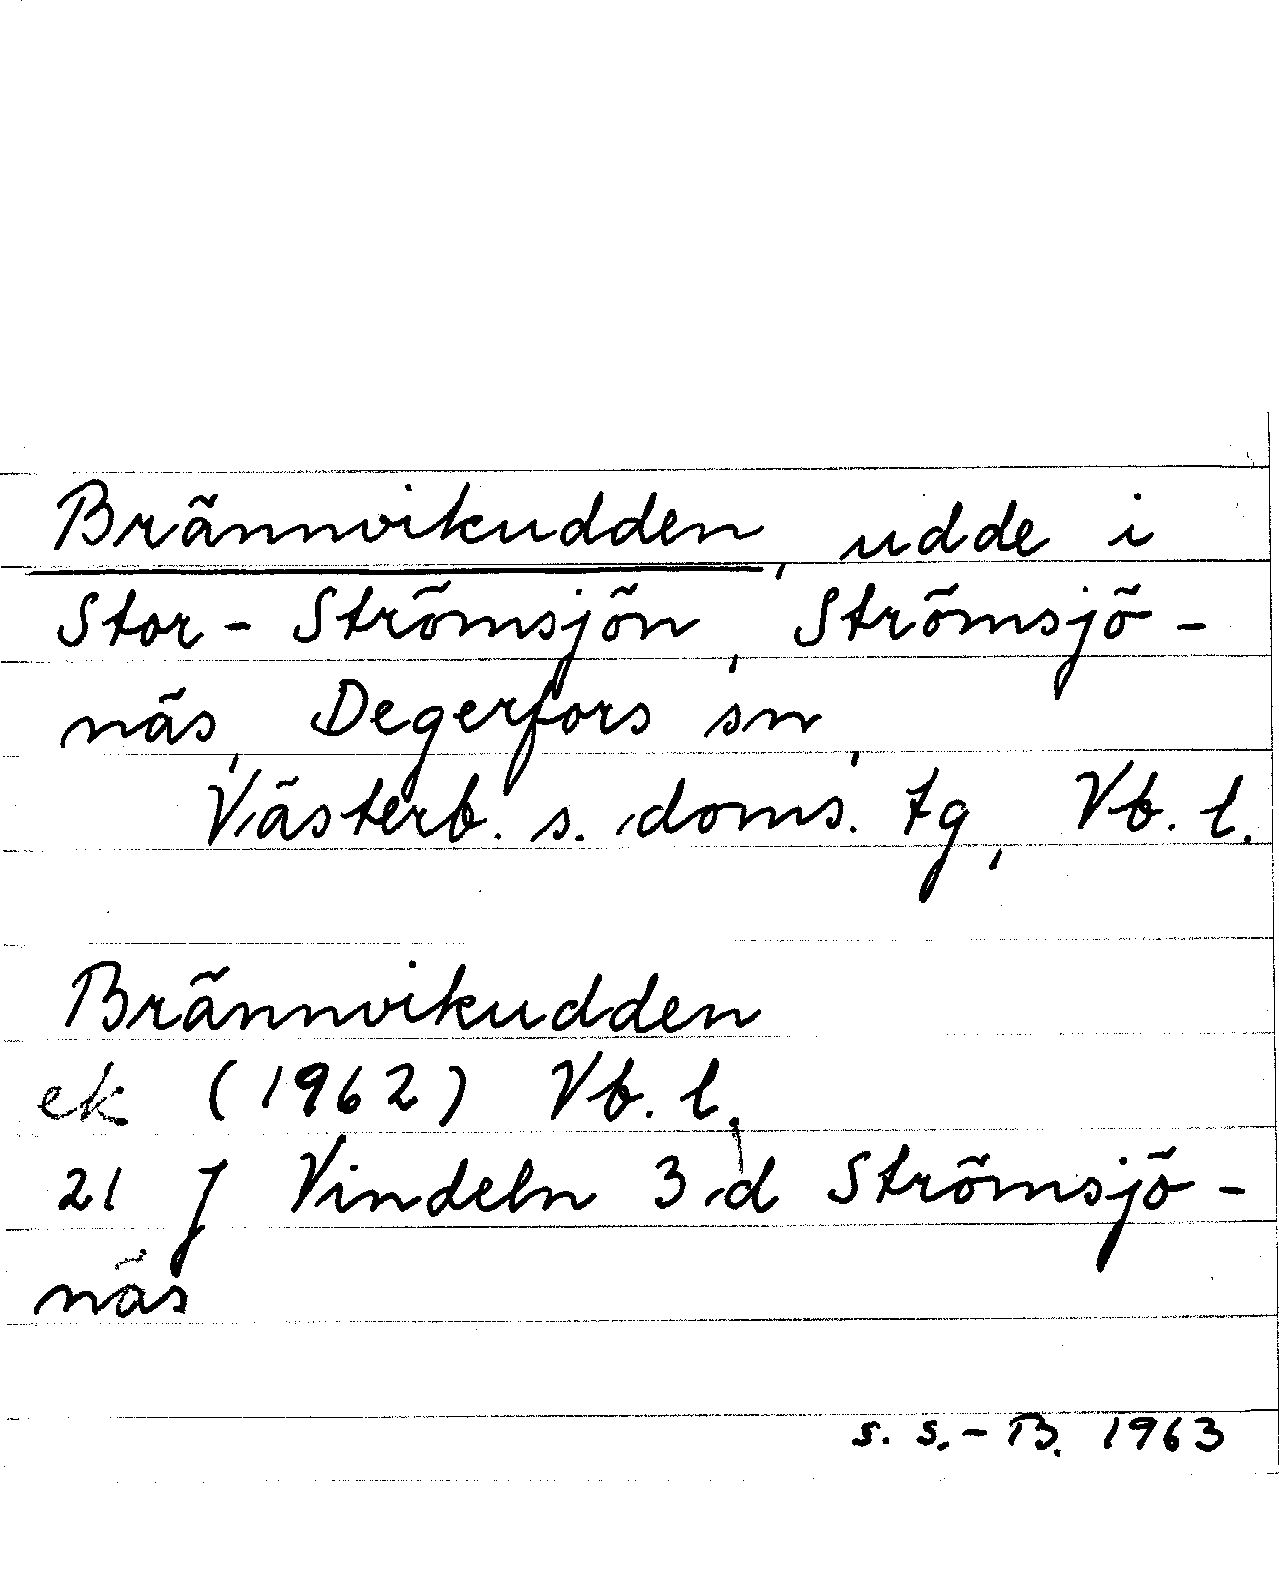 Brännvikudden, udde i
Stor-Strömsjön, Strömsjö-
näs, Degerfors sn,
Västerb. s. doms. tg, Vb. l.
Brännvikudden
ek (1962) Vb. l.
21 J Vindeln 3 d Strömsjö-
näs
S. S.-B. 1963